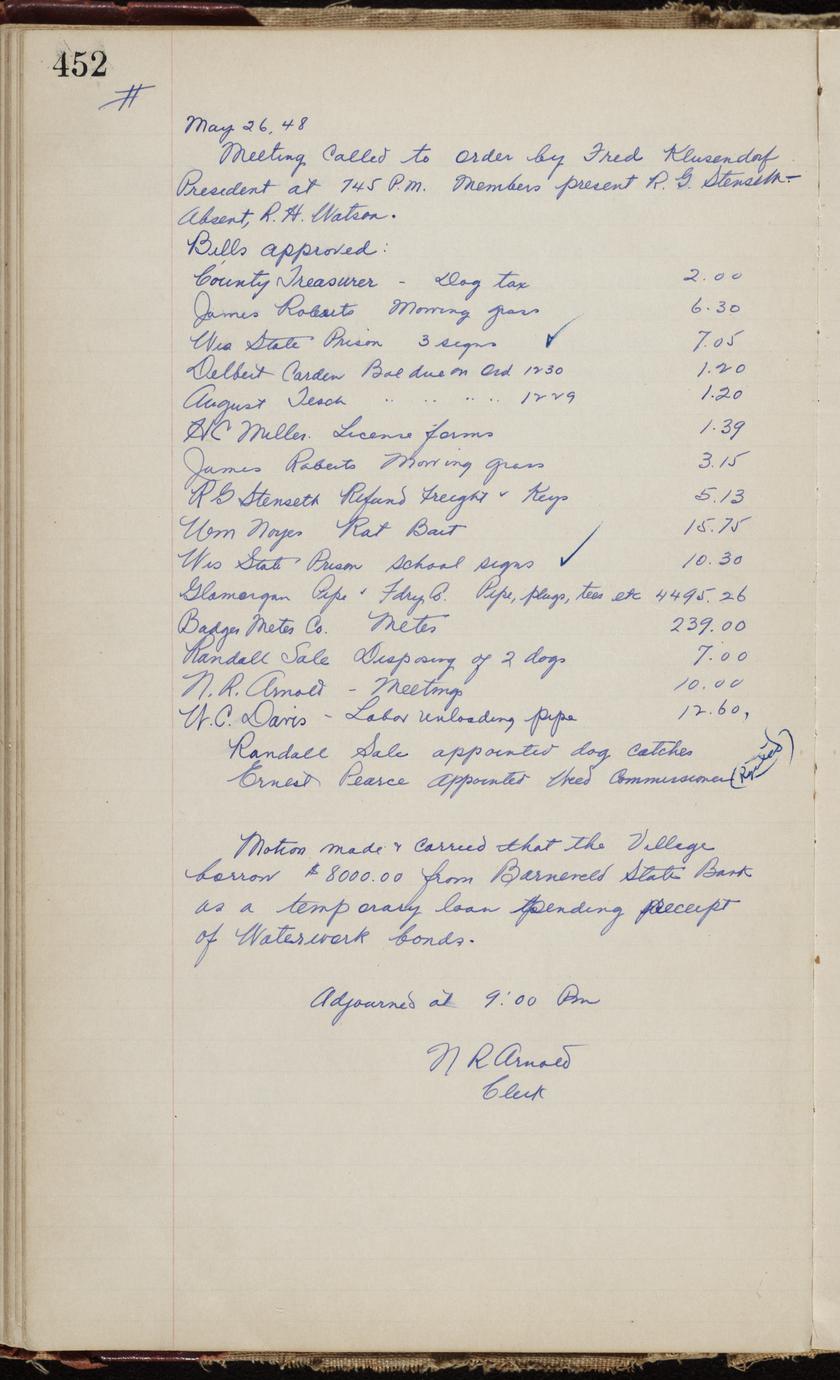 452
#
May 26, 48
Meeting Called to order by Fred Klusendorf
President at 745 P.M. Members present R. G. Stenseth
Absent, R. H. Watson.
Bills approved:
County Treasurer - Dog tax 2.00
James Roberts Mowing grass 6.30
Wis State Prison 3 signs ✓ 7.05
Delbert Carden Bal due on Ord 1230 1.20
August Tesch " " " " 1229 1.20
H C Miller. License forms 1.39
James Roberts Mowing grass 3.15
R G Stenseth Refund Freight & Keys 5.13
Wm Noyes Rat Bait 15.75
Wis State Prison School signs ✓ 10.30
Glamorgan Pipe & Fdry Co. Pipe, plugs, tees etc 4495.26
Badger Meter Co. Meter 239.00
Randall Sale Disposing of 2 dogs 7.00
N. R. Arnold - Meetings 10.00
W. C. Davis - Labor unloading pipe 12.60,
Randall Sale appointed dog catcher
Ernest Pearce appointed Weed Commissioner
Motion made & carried that the Village
borrow $8000.00 from Barneveld State Bank
as a temporary loan pending receipt
of Waterwork bonds.
Adjourned at 9:00 Pm
N R Arnold
Clerk